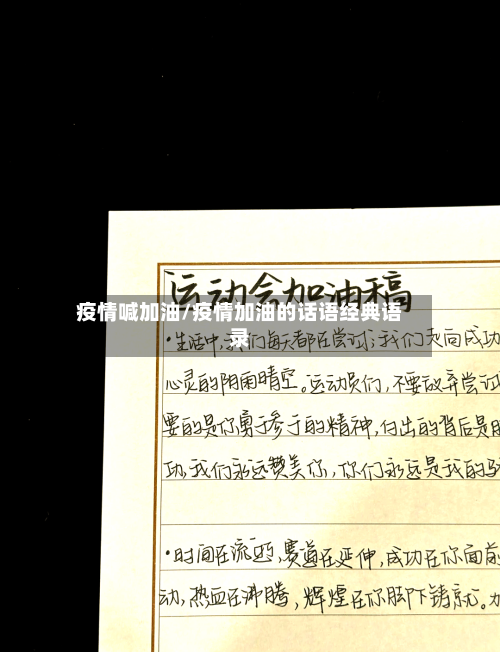 运动会加油稿
疫情喊加油/疫情加油的话语经典语
录
·生活中,我们每天都在尝试;我们走向成功
心灵的阴雨晴空。运动员们,不要放弃尝试
要的是你勇于参于的精神,付出的背后是
功,我们永远赞美你,你们永远是我的
·时间在流逝,赛道在延伸,成功在你面前
动,热血在沸腾,辉煌在你脚下铸就。